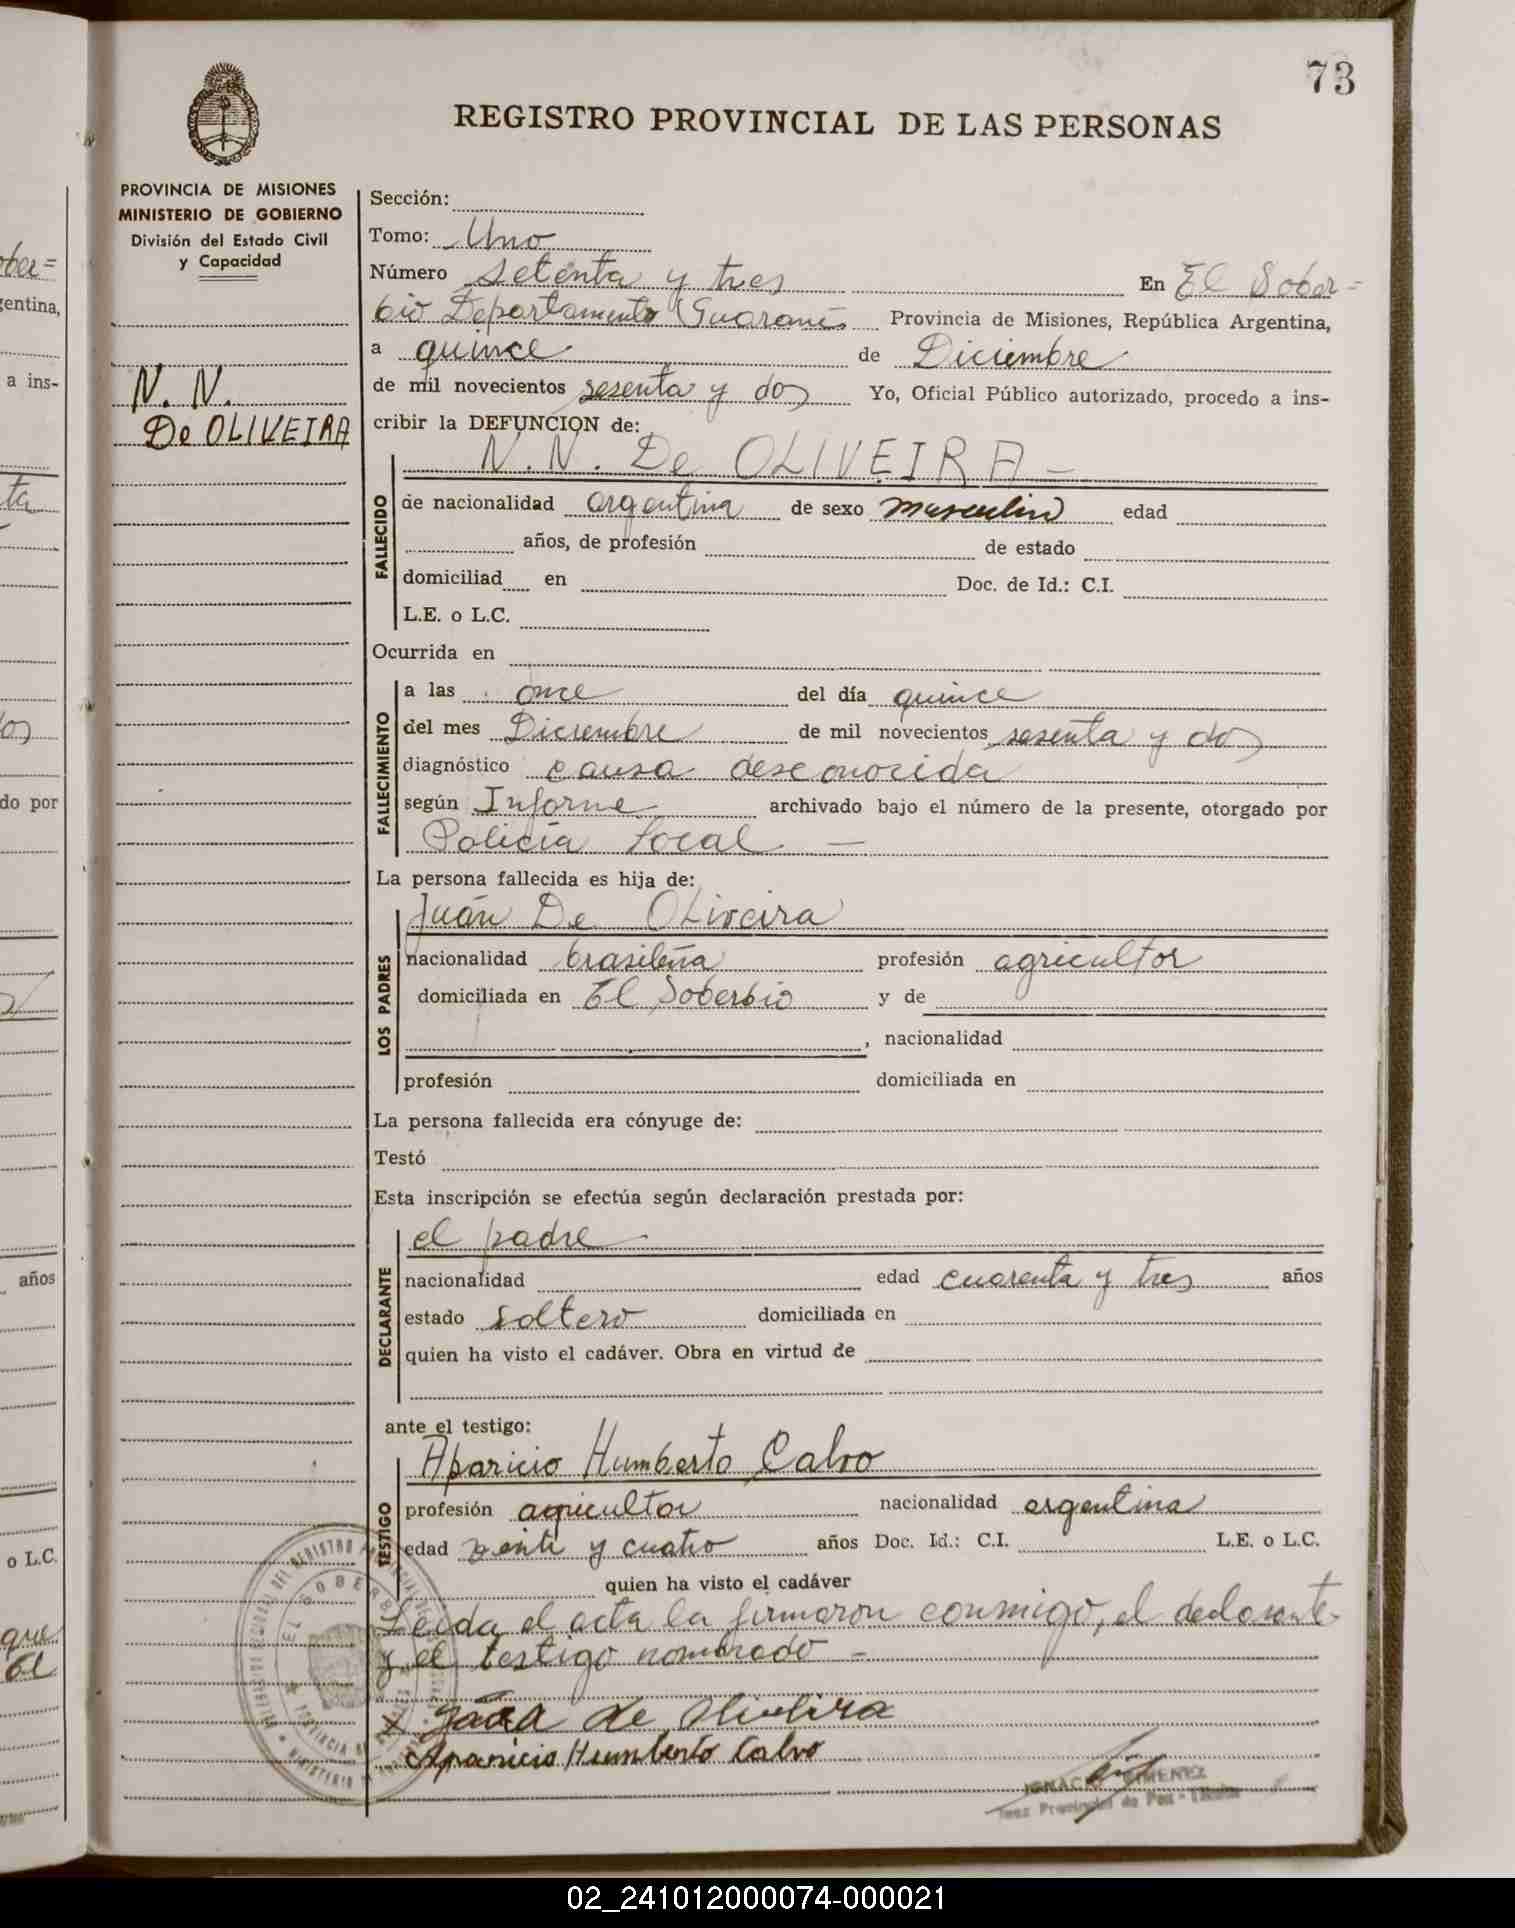 73
REGISTRO PROVINCIAL DE LAS PERSONAS
PROVINCIA DE MISIONES
MINISTERIO DE GOBIERNO
División del Estado Civil
y Capacidad
N. N.
De OLIVEIRA
Sección:
Tomo: Uno
Número setenta y tres En El Sober=
bio Departamento Guaraní Provincia de Misiones, República Argentina,
a quince de Diciembre
de mil novecientos sesenta y dos Yo, Oficial Público autorizado, procedo a ins-
cribir la DEFUNCION de:
N. N. De OLIVEIRA —
FALLECIDO
de nacionalidad argentina de sexo masculino edad
años, de profesión de estado
domiciliad en Doc. de Id.: C.I.
L.E. o L.C.
Ocurrida en
FALLECIMIENTO
a las once del día quince
del mes Diciembre de mil novecientos sesenta y dos
diagnóstico causa desconocida
según Informe archivado bajo el número de la presente, otorgado por
Policía Local —
La persona fallecida es hija de:
LOS PADRES
Juán De OLiveira
nacionalidad brasileña profesión agricultor
domiciliada en El Soberbio y de
, nacionalidad
profesión domiciliada en
La persona fallecida era cónyuge de:
Testó
Esta inscripción se efectúa según declaración prestada por:
DECLARANTE
el padre
nacionalidad edad cuarenta y tres años
estado soltero domiciliada en
quien ha visto el cadáver. Obra en virtud de
ante el testigo:
TESTIGO
Aparicio Humberto Calvo
profesión agricultor nacionalidad argentina
edad veinti y cuatro años Doc. Id.: C.I. L.E. o L.C.
quien ha visto el cadáver
Leida el acta la firmaron conmigo, el declarante
y el testigo nombrado =
x de Oliveira
Aparicio Humberto Calvo
IGNACIO GIMENEZ
Juez Provincial de Paz - Titular
ober=
gentina,
a ins-
ta
dos
do por
años
o L.C.
que
El
EL SOBERBIO
02_241012000074-000021